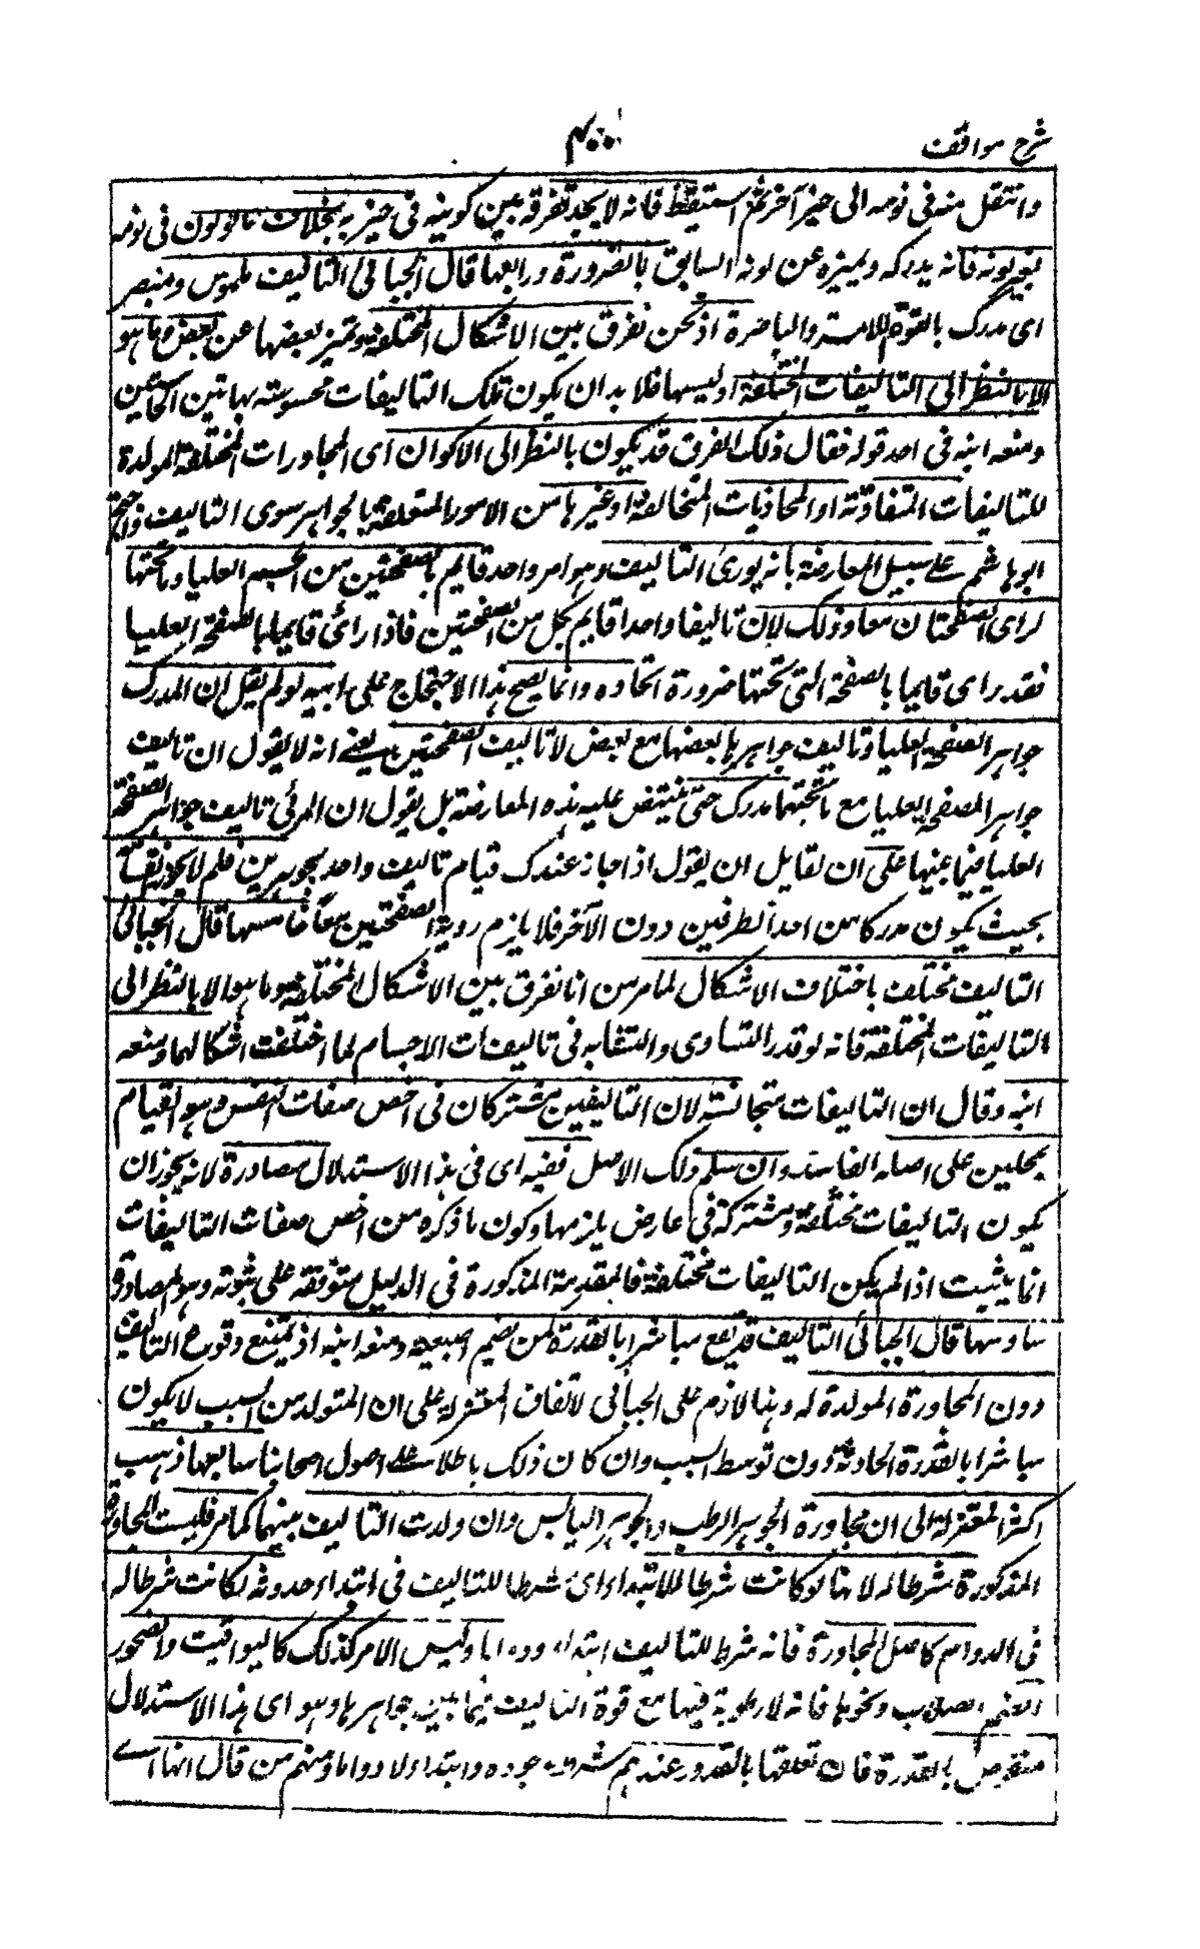 شرح مواقف
وانتقل منه فى نومه الى حيز آخر ثم استيقظ فانه لا يجد تفرقة بين كونيه فى حيزيه بخلاف ما لو لون فى نومه
بغير لونه فانه يدركه ويميزه عن لونه السابق بالضرورة ورابعها قال الجبائى التاليف ملموس ومبصر
اى مدرك بالقوة اللامسة والباصرة اذ نحن نفرق بين الاشكال المختلفة ونميز بعضها عن بعض وما هو
الا بالنظر الى التاليفات المختلفة او لمسها فلا بد ان يكون تلك التاليفات محسوسة بهاتين الحاستين
ومنعه ابنه فى احد قوليه فقال ذلك الفرق قد يكون بالنظر الى الاكوان اى المجاورات المختلفة المولدة
للتاليفات المتفاوتة او المحاذيات المتخالفة او غيرها من الامور المتعلقة بالجواهر سوى التاليف واحتج
ابو هاشم على سبيل المعارضة بانه لو رئى التاليف وهو امر واحد قايم بالصفحتين من الجسم العليا وما تحتها
لرأى الصفحتان معا وذلك لان تاليفا واحدا قايم بكل من الصفحتين فاذا رائى قايما بالصفحة العليا
فقد راى قايما بالصفحة التى تحتها ضرورة اتحاده وانما يصح هذا الاحتجاج على ابيه لو لم يقل ان المدرك
جواهر الصفحة العليا وتاليف جواهرها بعضها مع بعض لا تاليف الصفحتين يعنے انه لا يقول ان تاليف
جواهر الصفحة العليا مع ما تحتها مدرك حتى ينتهض عليه هذه المعارضة بل يقول ان المرئى تاليف جواهر الصفحة
العليا فيما بينها على ان لقايل ان يقول اذا جاز عندك قيام تاليف واحد بجوهرين فلم لا يجوز قيامه
بحيث يكون مدركا من احد الطرفين دون الآخر فلا يلزم روية الصفحتين معا خامسها قال الجبائى
التاليف مختلف باختلاف الاشكال لما مر من انا نفرق بين الاشكال المختلفة وما هو الا بالنظر الى
التاليفات المختلفة فانه لو قدر التساوى والتشابه فى تاليفات الاجسام لما اختلفت اشكالها ومنعه
ابنه وقال ان التاليفات متجانسة لان التاليفين مشتركان فى اخص صفات النفس وهو القيام
بمحلين على اصله الفاسد وان سلم ذلك الاصل ففيه اى فى هذا الاستدلال مصادرة لانه يجوز ان
يكون التاليفات مختلفة ومشتركة فى عارض يلزمها وكون ما ذكره من اخص صفات التاليفات
انما يثبت اذا لم يكن التاليفات مختلفة فالمقدمة المذكورة فى الدليل متوقفة على ثبوته وهو المصادرة
سادسها قال الجبائى التاليف قد يقع مباشرا بالقدرة كمن يضم اصبعيه ومنعه ابنه اذ يمتنع وقوع التاليف
دون المجاورة المولدة له وهذا لازم على الجبائى لاتفاق المعتزلة على ان المتولد من السبب لا يكون
مباشرا بالقدرة الحادثة دون توسط السبب وان كان ذلك باطلا على اصول اصحابنا سابعها ذهب
اكثر المعتزلة الى ان مجاورة الجوهر الرطب والجوهر اليابس وان ولدت التاليف بينهما كما مر فليست المجاورة
المذكورة شرطا له لانها لو كانت شرطا للابتداء اى شرطا للتاليف فى ابتداء حدوثه لكانت شرطا له
فى الدوام كاصل المجاورة فانه شرط للتاليف ابتداء ودواما وليس الامر كذلك كاليواقيت والصخور
الصم الصلاب ونحوها فانه لا رطوبة فيها مع قوة التاليف فيما بين جواهرها وهو اى هذا الاستدلال
منقوض بالقدرة فان تعلقها بالمقدور عندهم شرط وجوده وابتداء لا دواما ومنهم من قال انها اے